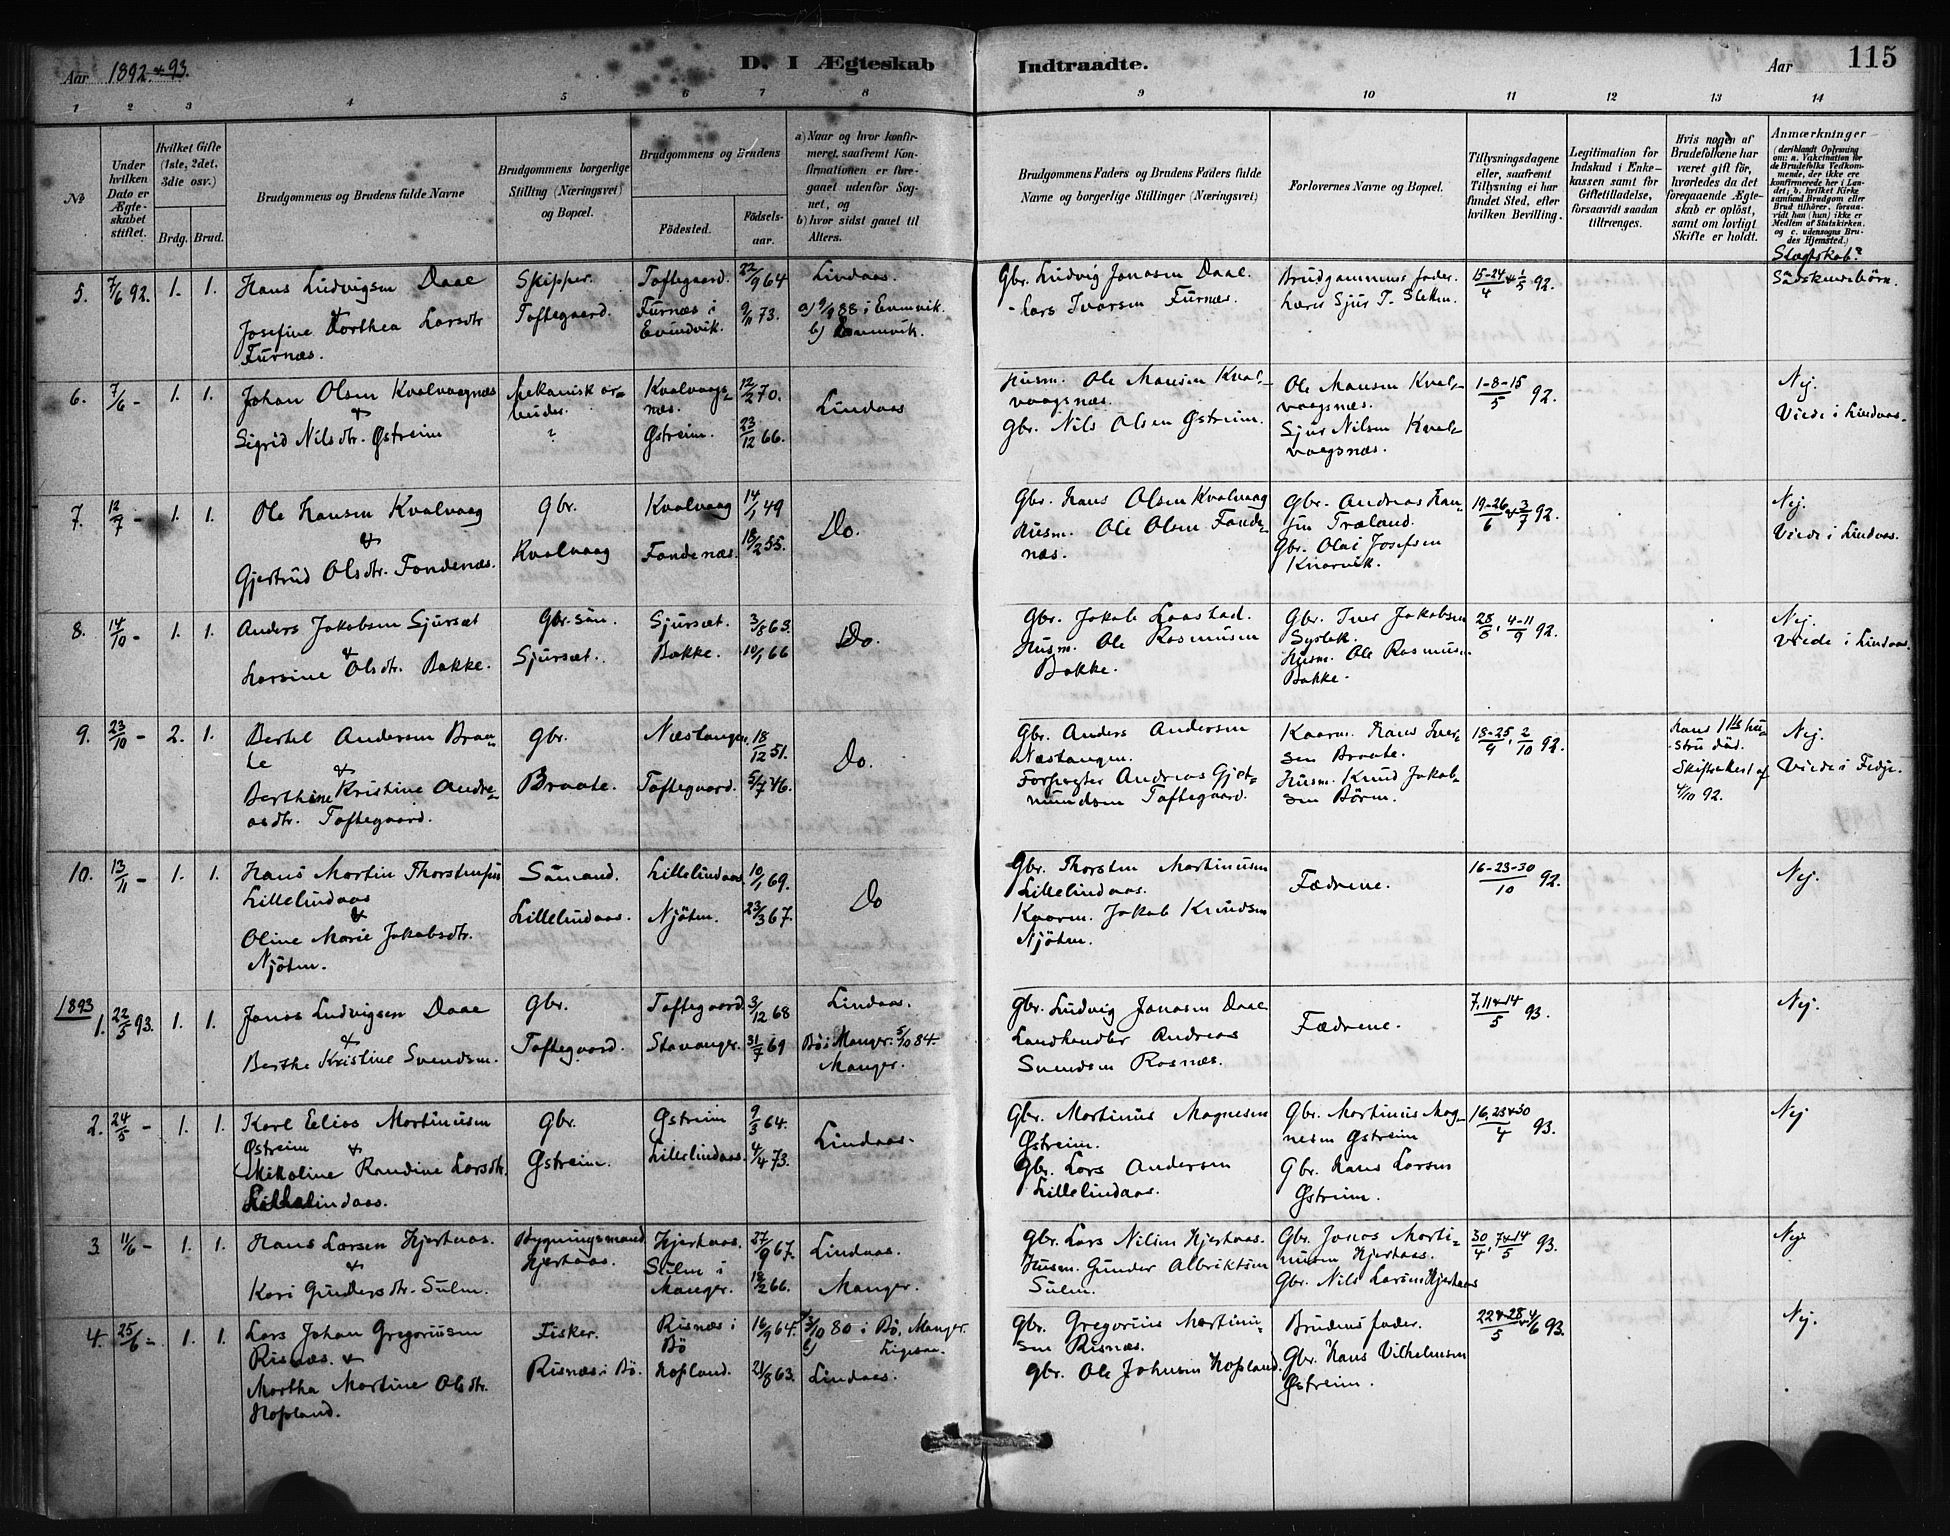 Aar 1892 & 93.
D. I Ægteskab Indtraadte.
Aar 115
1 2 3 4 5 6 7 8 9 10 11 12 13 14
No
Under hvilken Dato er Ægteskabet stiftet.
Hvilket Gifte (1ste, 2det, 3die osv.)
Brdg. Brud.
Brudgommens og Brudens fulde Navne
Brudgommens borgerlige Stilling (Næringsvei) og Bopæl.
Brudgommens og Brudens
Fødested.
Fødselsaar.
a) Naar og hvor konfirmeret, saafremt Konfirmationen er foregaaet udenfor Sognet, og
b) hvor sidst gaaet til Alters.
Brudgommens Faders og Brudens Faders fulde Navne og borgerlige Stillinger (Næringsvei)
Forlovernes Navne og Bopæl.
Tillysningsdagene eller, saafremt Tillysning ei har fundet Sted, efter hvilken Bevilling.
Legitimation for Indskud i Enkekassen samt for Giftetilladelse, forsaavidt saadan tiltrænges.
Hvis nogen af Brudefolkene har været gift før, hvorledes da det foregaaende Ægteskab er opløst, samt om lovligt Skifte er holdt.
Anmærkninger (deriblandt Oplysning om: a. Vakcination for de Brudefolks Vedkommende, der ikke ere konfirmerede her i Landet; b. hvilket Kirkesamfund Brudgom eller Brud tilhører, forsaavidt han (hun) ikke er Medlem af Statskirken, og c. udensogns Brudes Hjemsted.)
Slægtskab?
5. 7/6 92. 1. 1.
Hans Ludvigsen Daae
Josefine Dorthea Larsdtr
Furnæs.
Skipper.
Toftegaard.
Toftegaard. 22/9 64
Furnæs i Evindvik. 9/11 73.
Lindaas.
b) Evenvik.
Gbr. Ludvig Jonasen Daae.
- Lars Ivarsen Furnæs.
Brudgommens fader.
Lærer Sjur T. Sletten.
15-24/4 & 1/5 92.
Södskendebörn.
6. 7/6 - 1. 1.
Johan Olsen Kvalvaagnæs
&
Sigrid Nilsdtr. Østreim
Mekanisk arbeider.
?
Kvalvaagnæs. 12/2 70.
Østreim. 23/12 66.
Lindaas
Husm. Ole Monsen Kvalvaagnæs.
Gbr. Nils Olsen Østreim.
Ole Monsen Kvalvaagsnæs.
Sjur Nilsen Kvalvaagsnæs.
1-8-15/5 92.
Nej.
Viede i Lindaas.
7. 12/7 - 1. 1.
Ole Hansen Kvalvaag
&
Gjertrud Olsdtr. Fondenæs.
Gbr.
Kvalvaag
Kvalvaag 14/1 49
Fondenæs. 18/2 55.
Do.
Gbr. Hans Olsen Kvalvaag
Husm. Ole Olsen Fondenæs.
Gbr. Andreas Hansen Træland.
Gbr. Olai Josefsen
Knarvik.
19-26/6 & 3/7 92.
Nej.
Viede i Lindaas.
8. 14/10 - 1. 1.
Anders Jakobsen Sjursæt
&
Larsine Olsdtr. Bakke.
Gbr. sön.
Sjursæt.
Sjursæt. 3/8 63.
Bakke. 10/1 66
Do.
Gbr. Jakob Laastad.
Husm. Ole Rasmusen
Bakke.
Gbr. Iver Jakobsen
Syslak.
Husm. Ole Rasmusen
Bakke.
28/8, 4-11/9 92.
Nej.
Viede i Lindaas.
9. 23/10 - 2. 1.
Bertel Andersen Braate
&
Berthine Kristine Andreasdtr. Toftegaard.
Gbr.
Braate.
Næstangen. 18/12 51.
Toftegaard. 5/7 46.
Do.
Gbr. Anders Andersen
Næstangen.
Forpagter Andreas Gjetmundsen Toftegaard.
Kaarm. Hans Iversen Braate.
Husm. Knud Jakobsen Børm.
18-25/9, 2/10 92.
Hans 1ste hustru död.
Skifteattest af
4/10 92.
Nej.
Viede i Fedje.
10. 13/11 - 1. 1.
Hans Martin Thorstensen
Lillelindaas
&
Oline Marie Jakobsdtr.
Njöten.
Sömand.
Lillelindaas.
Lillelindaas. 10/1 69.
Njöten. 23/3 67.
Do
Gbr. Thorsten Martinusen
Lillelindaas.
Kaarm. Jakob Knudsen
Njöten.
Fædrene.
16-23-30/10 92.
Nej.
1893
1. 22/5 93. 1. 1.
Jonas Ludvigsen Daae
&
Berthe Kristine Svendsen.
Gbr.
Toftegaard.
Toftegaard 3/12 68
Stavanger. 31/7 69
Lindaas.
Bø i Manger. 5/10 84.
Manger.
Gbr. Ludvig Jonasen Daae
Landhandler Andreas
Svendsen Rosnæs.
Fædrene.
7, 11 & 14/5 93.
Nej.
2. 24/5 - 1. 1.
Karl Elias Martinusen
Østreim &
Mikoline Randine Larsdtr.
Lillelindaas.
Gbr.
Østreim.
Østreim 9/3 64.
Lillelindaas. 4/4 73.
Lindaas.
Gbr. Martinus Magnesen
Østreim.
Gbr. Lars Andersen
Lillelindaas.
Gbr. Martinus Magnesen Østreim
Gbr. Hans Larsen
Østreim.
16, 23 & 30/4 93.
Nej
3 11/6 - 1. 1.
Hans Larsen Hjertaas.
&
Kari Gundersdtr. Sulen.
Bygningsmand
Hjertaas.
Hjertaas. 27/9 67.
Sulen i Manger. 18/2 66.
Lindaas.
Manger.
Gbr. Lars Nilsen Hjertaas.
Husm. Gunder Albriktsen
Sulen.
Gbr. Jonas Martinusen Hjertaas.
Gbr. Nils Larsen Hjertaas
30/4, 7 & 14/5 93.
Nej
4. 25/6 - 1. 1.
Lars Johan Gregoriusen
Risnæs. &
Martha Martine Olsdtr.
Hopland.
Fisker.
Risnæs i Bö.
Risnæs i Bö 16/9 64.
Hopland. 21/8 63.
3/10 80 i Bö, Manger.
b) Ligesaa.
Lindaas.
Gbr. Gregorius Martinusen Risnæs.
Gbr. Ole Johnsen Hopland.
Brudens fader.
Gbr. Hans Vilhelmsen
Østreim.
22 & 28/5 & 4/6 93.
Nej.